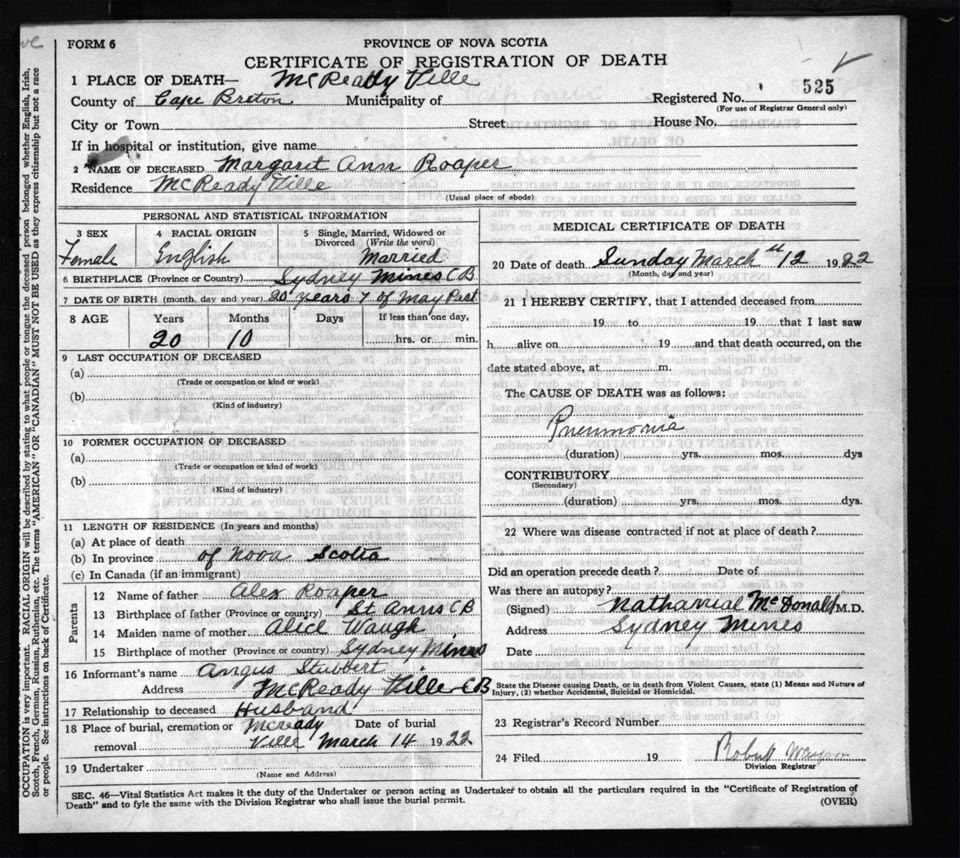 FORM 6
PROVINCE OF NOVA SCOTIA
CERTIFICATE OF REGISTRATION OF DEATH
1 PLACE OF DEATH— McReady Ville
County of Cape Breton Municipality of Registered No. 525
(For use of Registrar General only)
City or Town Street House No.
If in hospital or institution, give name
2 NAME OF DECEASED Margaret Ann Roaper
Residence McReady Ville
(Usual place of abode)
PERSONAL AND STATISTICAL INFORMATION
3 SEX 4 RACIAL ORIGIN 5 Single, Married, Widowed or Divorced (Write the word)
Female English Married
6 BIRTHPLACE (Province or Country) Sydney Mines C B
7 DATE OF BIRTH (month, day and year) 20 years 7 of May Past
8 AGE Years Months Days If less than one day,
20 10 hrs. or min.
9 LAST OCCUPATION OF DECEASED
(a)
(Trade or occupation or kind or work)
(b)
(Kind of industry)
10 FORMER OCCUPATION OF DECEASED
(a)
(Trade or occupation or kind of work)
(b)
(Kind of industry)
11 LENGTH OF RESIDENCE (In years and months)
(a) At place of death
(b) In province of Nova Scotia
(c) In Canada (if an immigrant)
Parents
12 Name of father Alex Roaper
13 Birthplace of father (Province or country) St Anns C B
14 Maiden name of mother Alice Waugh
15 Birthplace of mother (Province or country) Sydney Mines
16 Informant's name Angus Stubbert
Address McReady Ville C B
17 Relationship to deceased Husband
18 Place of burial, cremation or removal Mcready Ville Date of burial March 14 1922
19 Undertaker
(Name and Address)
MEDICAL CERTIFICATE OF DEATH
20 Date of death Sunday March 12 1922
(Month, day and year)
21 I HEREBY CERTIFY, that I attended deceased from
19 to 19 that I last saw
h alive on 19 and that death occurred, on the
date stated above, at m.
The CAUSE OF DEATH was as follows:
Pneumonia
(duration) yrs. mos. dys
CONTRIBUTORY
(Secondary)
(duration) yrs. mos. dys.
22 Where was disease contracted if not at place of death?
Did an operation precede death? Date of
Was there an autopsy?
(Signed) Nathanial McDonald M.D.
Address Sydney Mines
Date
State the Disease causing Death, or in death from Violent Causes, state (1) Means and Nature of
Injury, (2) whether Accidental, Suicidal or Homicidal.
23 Registrar's Record Number
24 Filed 19 Robert
Division Registrar
SEC. 46—Vital Statistics Act makes it the duty of the Undertaker or person acting as Undertaker to obtain all the particulars required in the "Certificate of Registration of
Death" and to fyle the same with the Division Registrar who shall issue the burial permit. (OVER)
OCCUPATION is very important. RACIAL ORIGIN will be described by stating to what people or tongue the deceased person belonged whether English, Irish,
Scotch, French, German, Russian, Ruthenian, etc. The terms "AMERICAN" OR "CANADIAN" MUST NOT BE USED as they express citizenship but not a race
or people. See instructions on back of Certificate.